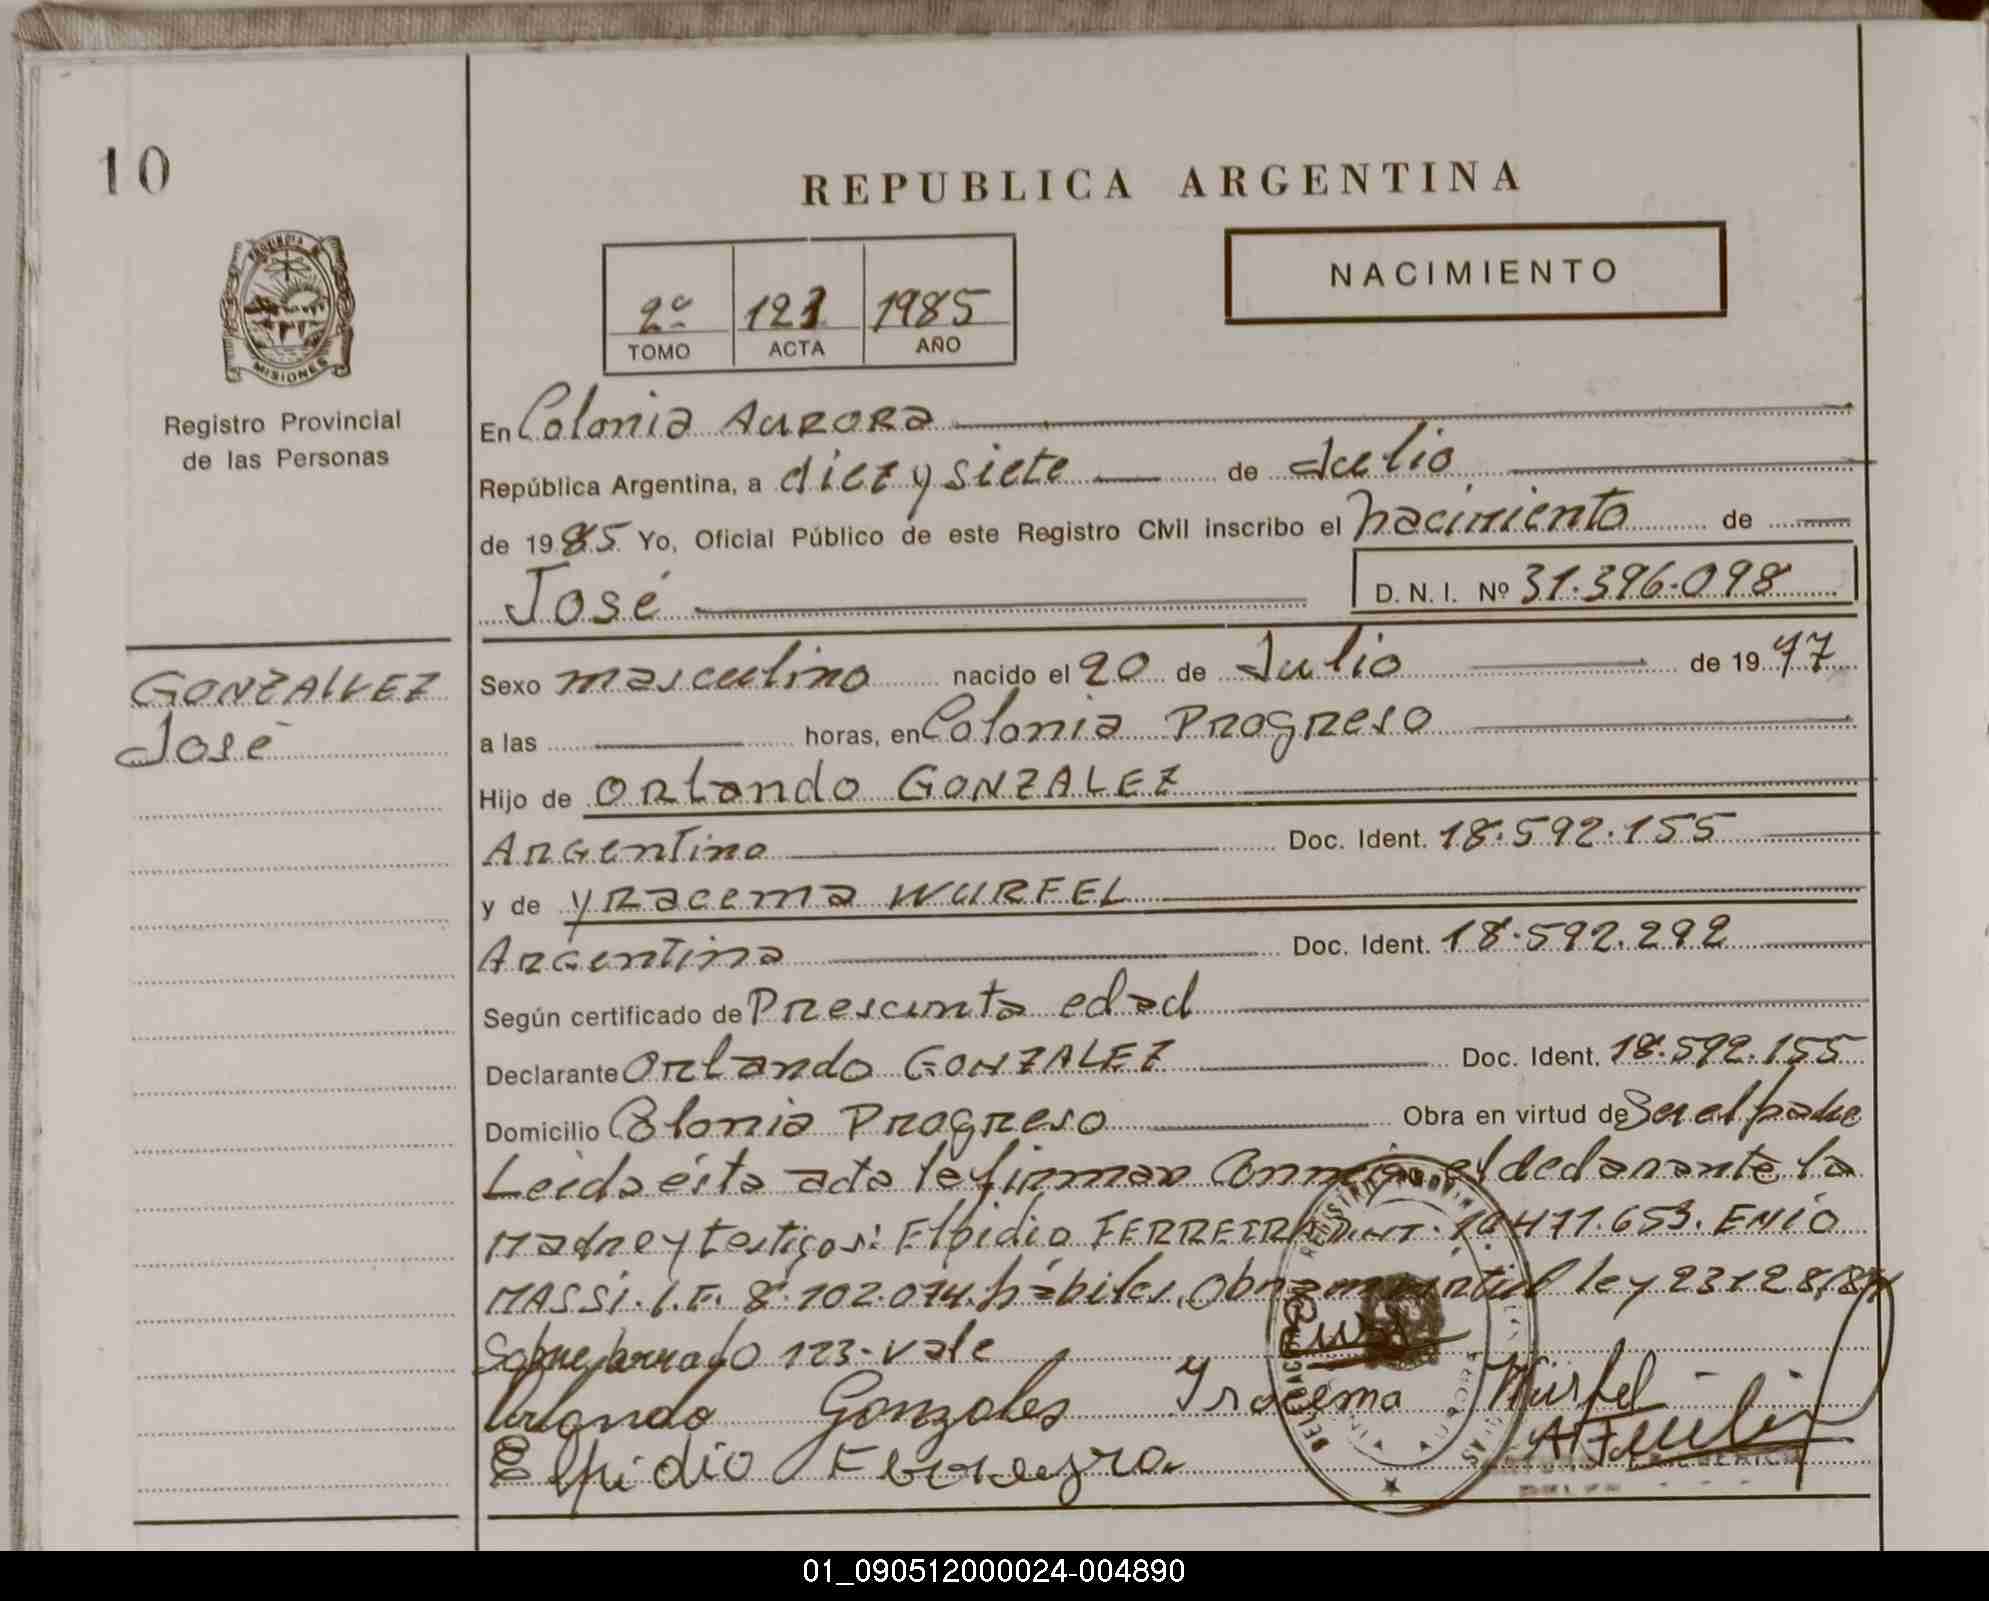 10
REPUBLICA ARGENTINA
NACIMIENTO
2º 121 1985
TOMO ACTA AÑO
PROVINCIA DE
MISIONES
Registro Provincial
de las Personas
En Colonia Aurora
República Argentina, a diez y siete de Julio
de 1985 Yo, Oficial Público de este Registro Civil inscribo el nacimiento de
José D. N. I. Nº 31.396.098
GONZALVEZ
José
Sexo masculino nacido el 20 de Julio de 1977
a las horas, en Colonia Progreso
Hijo de Orlando GONZALEZ
Argentino Doc. Ident. 18.592.155
y de Yracema WURFEL
Argentina Doc. Ident. 18.592.292
Según certificado de Presunta edad
Declarante Orlando GONZALEZ Doc. Ident. 18.592.155
Domicilio Colonia Progreso Obra en virtud de Ser el padre
Leida ésta acta la firman Conmigo el declarante la
Madre y testigos: Elpidio FERREIRA 477.653. ENIO
MASSI. 8.102.074. hábiles. ley 23128/84
Sobreborrado 123-vale
Orlando Gonzales Yracema Würfel
Elpidio Ferreyra
01_090512000024-004890